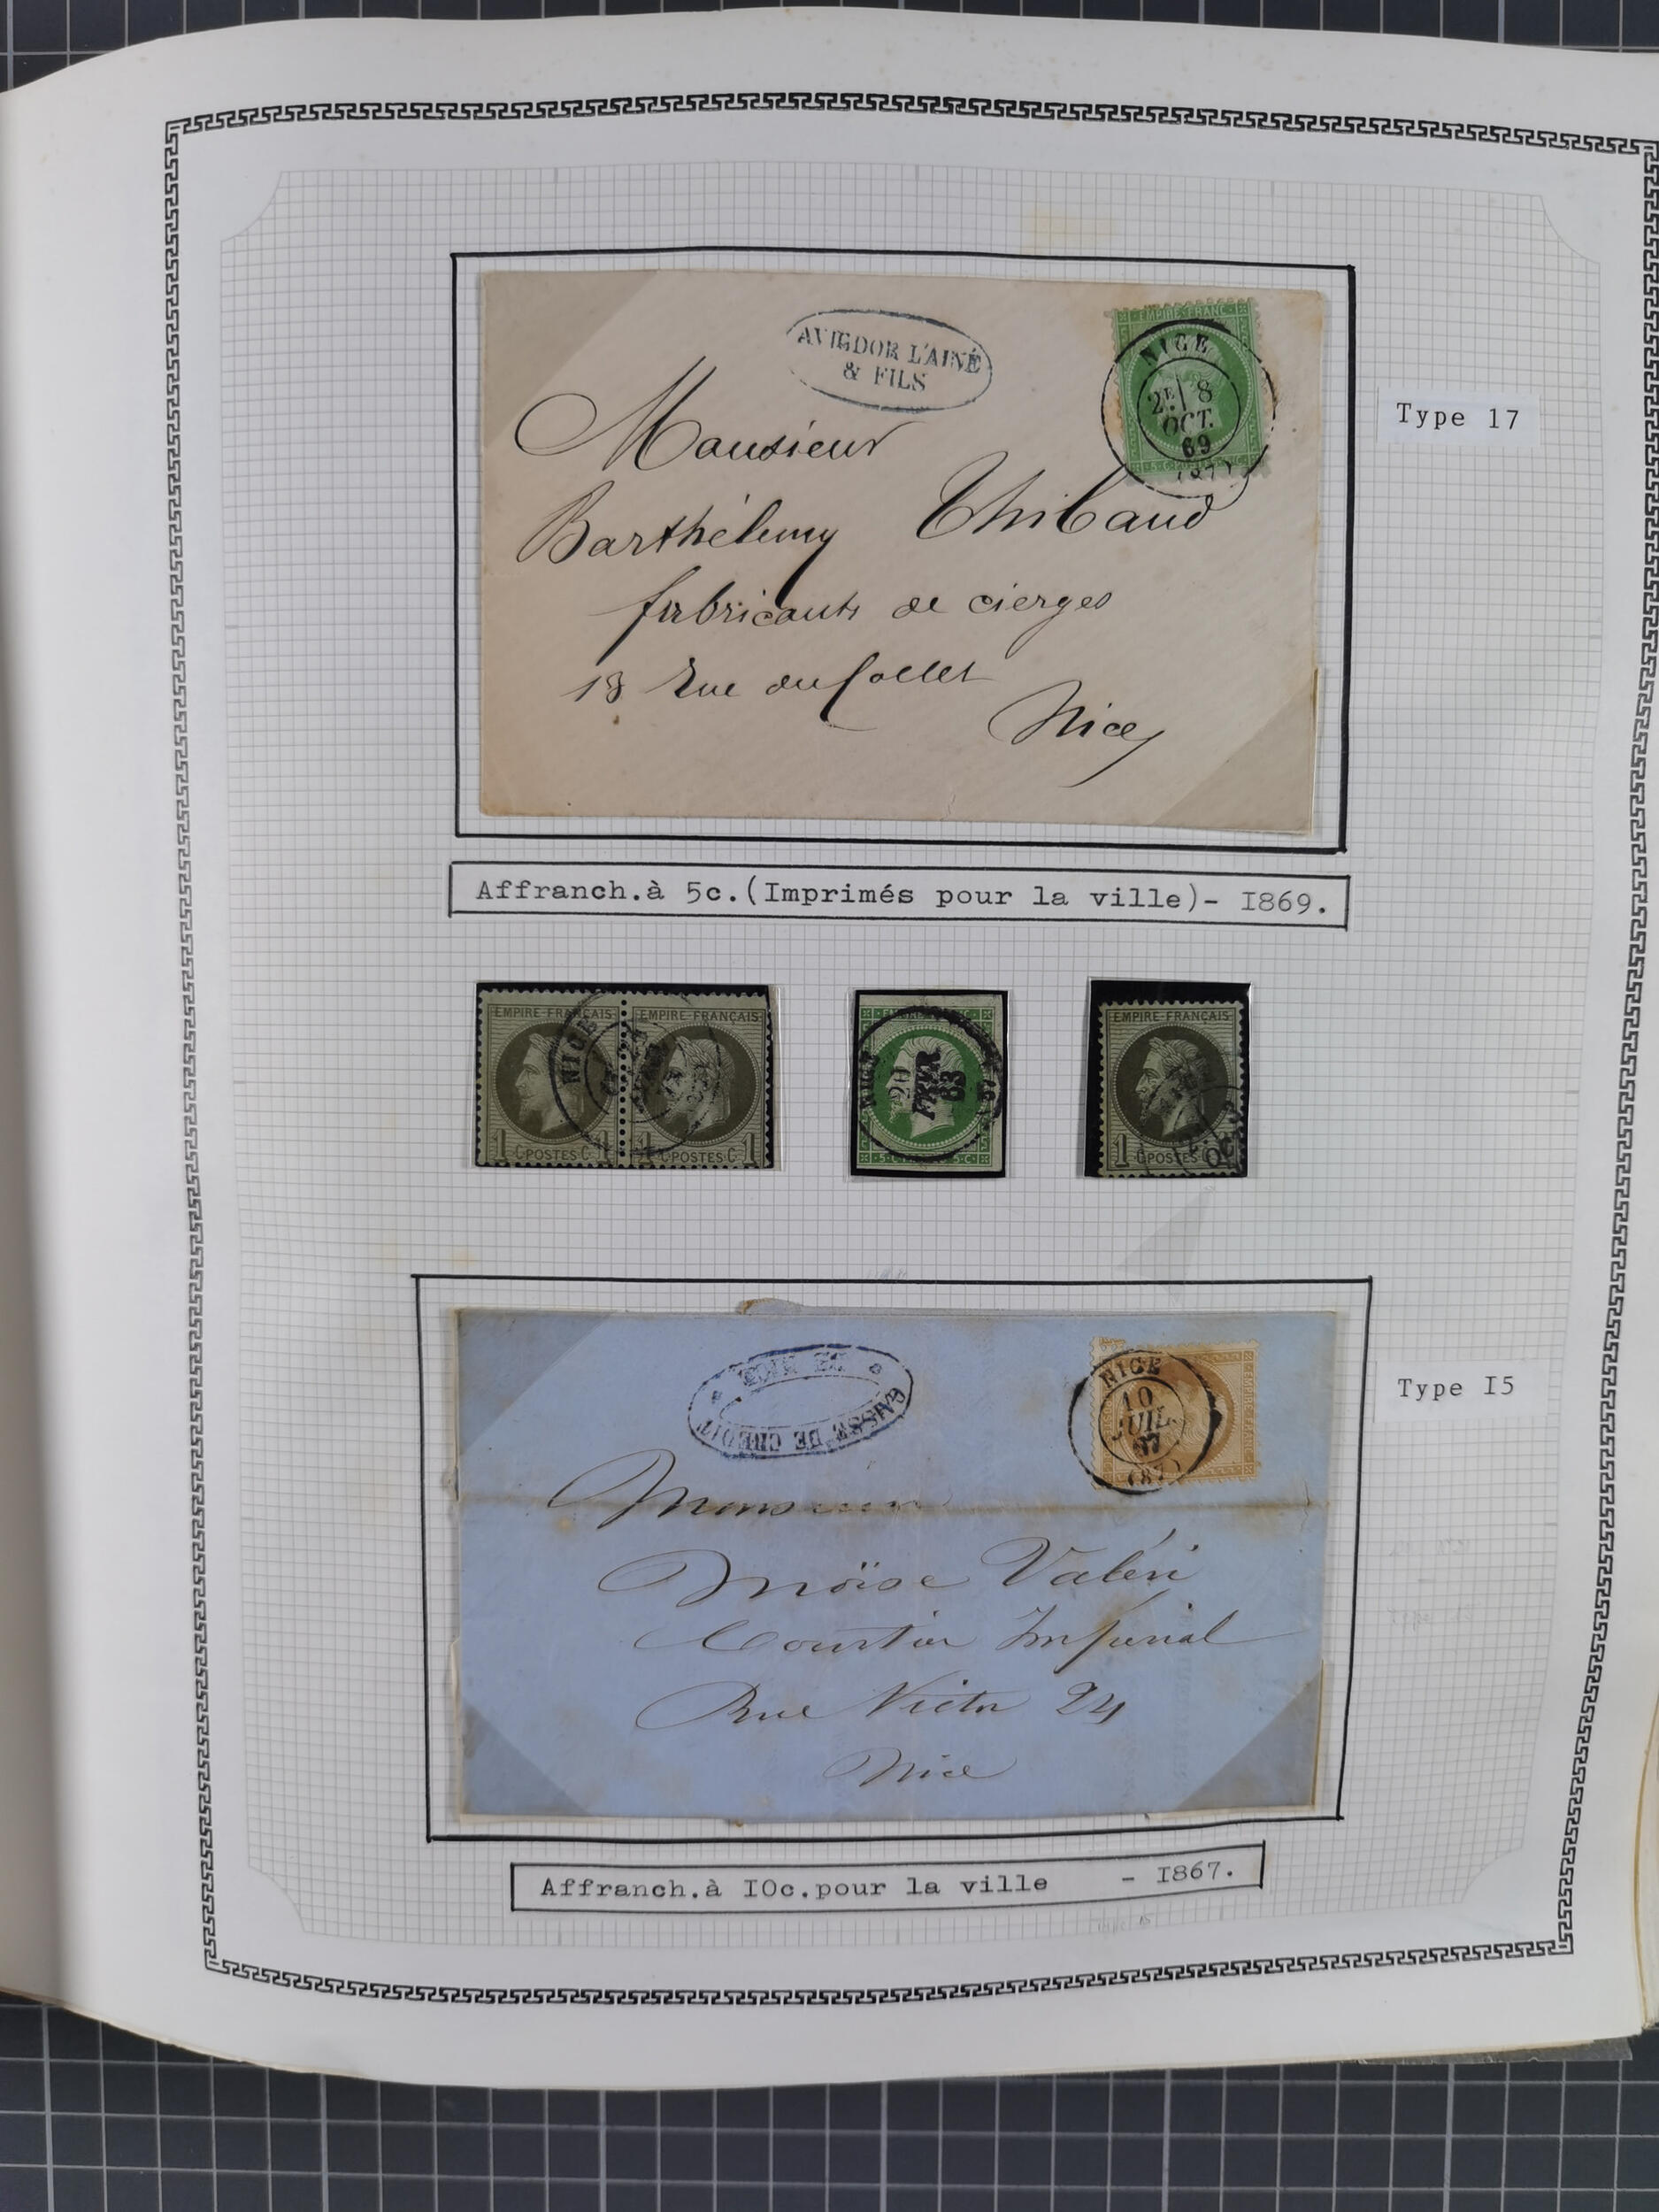 AVIGDOR L'AINÉ
& FILS
EMPIRE FRANC
NICE
2E 8
OCT.
69
(87)
Monsieur
Barthélemy Thibaud
fabricants de cierges
18 Rue du Collet
Nice
Type 17
Affranch.à 5c.(Imprimés pour la ville)- I869.
EMPIRE FRANÇAIS
EMPIRE FRANÇAIS
NICE
1 C POSTES C 1
1 C POSTES C 1
NICE
20
FEVR.
63
5 C
5 C
EMPIRE FRANÇAIS
1 C POSTES C
OC
CAISSE DE CREDIT
DE NICE
NICE
10
JUIL.
67
(87)
Monsieur
Moïse Valéri
Courtier Impérial
Rue Victor 24
Nice
Type I5
Affranch.à IOc.pour la ville - I867.